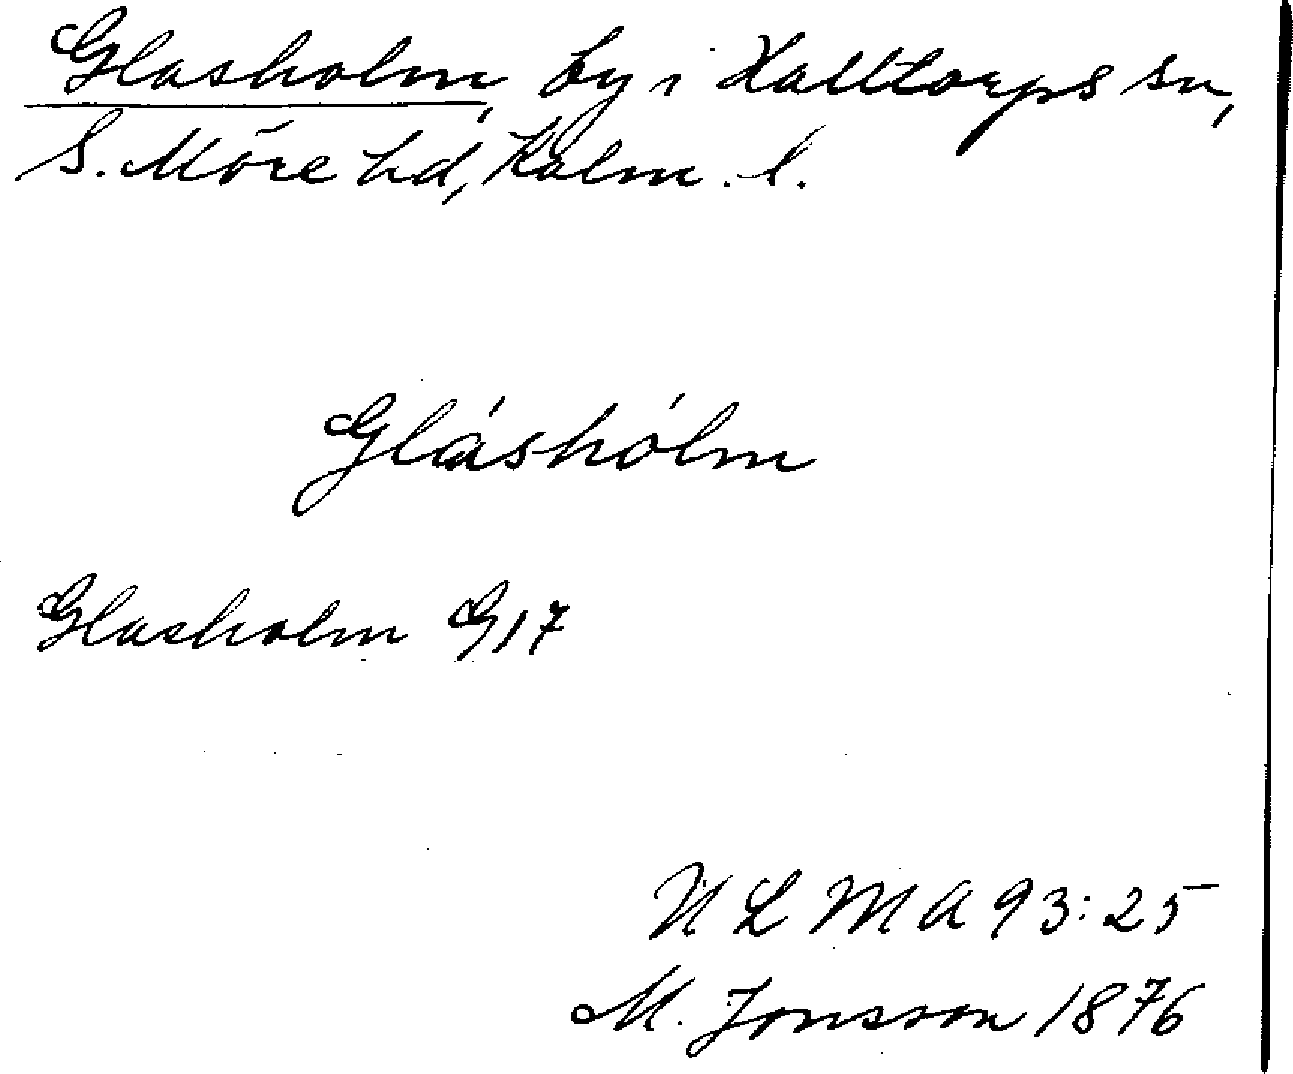 Glasholm, by i Halltorps sn,
S. Möre hd, Kalm. l.
Gláshólm
Glasholm G17
ULMA 93:25
M. Jonsson 1876